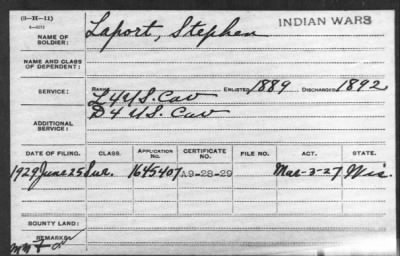 (3-H-11)
NAME OF SOLDIER: Laport, Stephen INDIAN WARS
NAME AND CLASS OF DEPENDENT:
SERVICE: RANK L 4 U.S. Cav ENLISTED 1889 DISCHARGED 1892
ADDITIONAL SERVICE: D 4 U.S. Cav
DATE OF FILING. CLASS. APPLICATION No. CERTIFICATE NO. FILE NO. ACT. STATE.
1929 June 25 Sur. 1645407 A9-28-29 Mar-3-27 Wis.
BOUNTY LAND:
REMARKS: